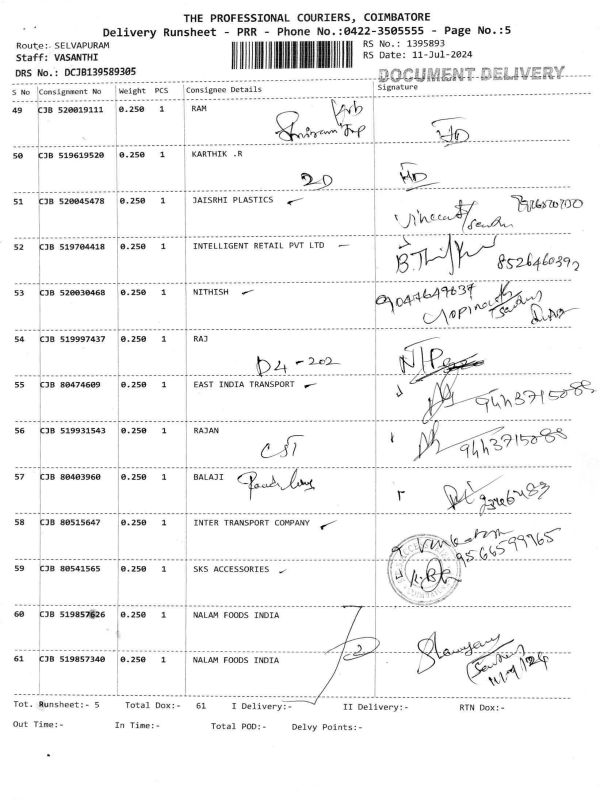 THE PROFESSIONAL COURIERS, COIMBATORE
Delivery Runsheet - PRR - Phone No.:0422-3505555 - Page No.:5
Route: SELVAPURAM RS No.: 1395893
Staff: VASANTHI RS Date: 11-Jul-2024
DRS No.: DCJB139589305 DOCUMENT DELIVERY
S No Consignment No Weight PCS Consignee Details Signature
49 CJB 520019111 0.250 1 RAM
HD
50 CJB 519619520 0.250 1 KARTHIK .R
2D HD
51 CJB 520045478 0.250 1 JAISRHI PLASTICS
52 CJB 519704418 0.250 1 INTELLIGENT RETAIL PVT LTD
8526460392
53 CJB 520030468 0.250 1 NITHISH
9047649637
Gopinath
54 CJB 519997437 0.250 1 RAJ
D4-202 NTP
55 CJB 80474609 0.250 1 EAST INDIA TRANSPORT
9443715088
56 CJB 519931543 0.250 1 RAJAN
CST 9443715088
57 CJB 80403960 0.250 1 BALAJI
58 CJB 80515647 0.250 1 INTER TRANSPORT COMPANY
9566599765
59 CJB 80541565 0.250 1 SKS ACCESSORIES
60 CJB 519857626 0.250 1 NALAM FOODS INDIA
61 CJB 519857340 0.250 1 NALAM FOODS INDIA
Tot. Runsheet:- 5 Total Dox:- 61 I Delivery:- II Delivery:- RTN Dox:-
Out Time:- In Time:- Total POD:- Delvy Points:-